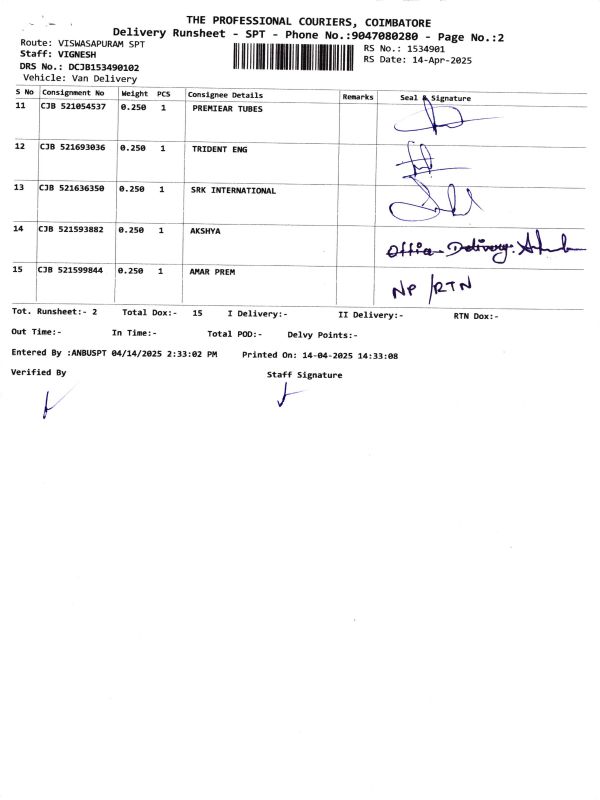 THE PROFESSIONAL COURIERS, COIMBATORE
Delivery Runsheet - SPT - Phone No.:9047080280 - Page No.:2
Route: VISWASAPURAM SPT
Staff: VIGNESH
DRS No.: DCJB153490102
Vehicle: Van Delivery
RS No.: 1534901
RS Date: 14-Apr-2025
S No Consignment No Weight PCS Consignee Details Remarks Seal & Signature
11 CJB 521054537 0.250 1 PREMIEAR TUBES
12 CJB 521693036 0.250 1 TRIDENT ENG
13 CJB 521636350 0.250 1 SRK INTERNATIONAL
14 CJB 521593882 0.250 1 AKSHYA Office Delivery.
15 CJB 521599844 0.250 1 AMAR PREM NP /RTN
Tot. Runsheet:- 2 Total Dox:- 15 I Delivery:- II Delivery:- RTN Dox:-
Out Time:- In Time:- Total POD:- Delvy Points:-
Entered By :ANBUSPT 04/14/2025 2:33:02 PM Printed On: 14-04-2025 14:33:08
Verified By Staff Signature